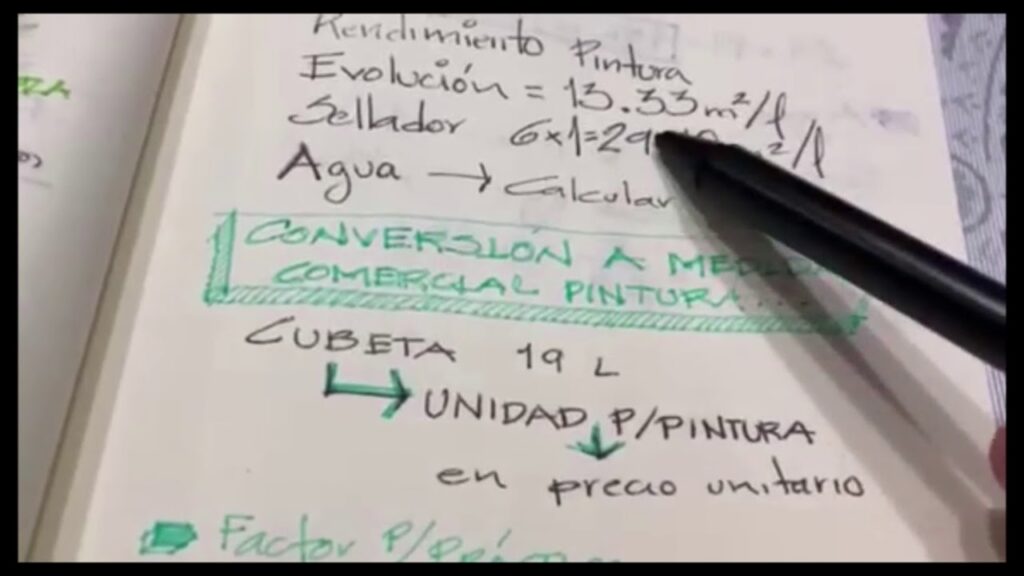 Rendimiento Pintura
Evolución = 13.33 m²/l
Sellador 6x1=29 m²/l
Agua → Calcular
CONVERSIÓN A MEDIDA
COMERCIAL PINTURA...
CUBETA 19 L
UNIDAD P/PINTURA
en precio unitario
Factor P/